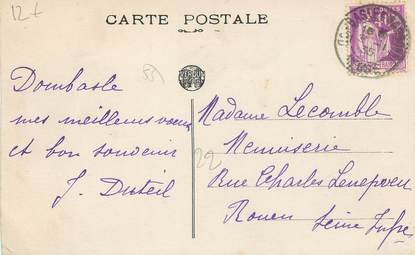 12 €
CARTE POSTALE
VERDUN
Dombasle
mes meilleurs voeux
et bon souvenir
J. Duteil
22
Madame Lecomble
Menuiserie
Rue Charles Lenepveu
Rouen Seine Infre